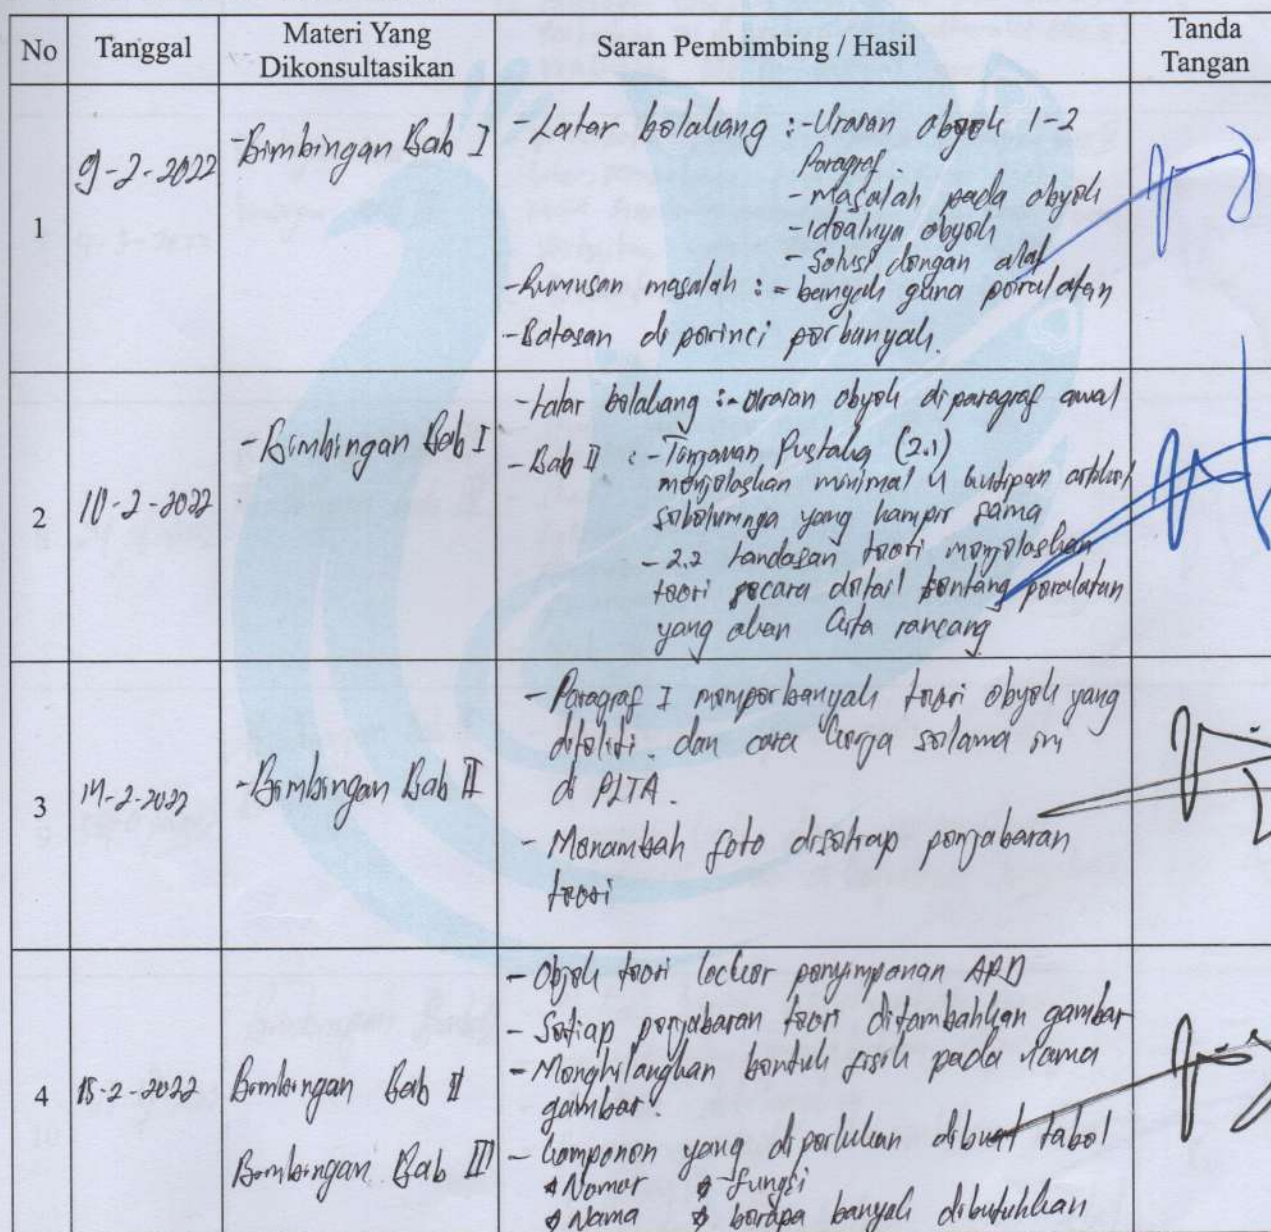 No Tanggal Materi Yang Dikonsultasikan Saran Pembimbing / Hasil Tanda Tangan
1 9-2-2022 -Bimbingan Bab I
- Latar belakang :- Uraian obyek 1-2
Paragraf.
- masalah pada obyek
- idealnya obyek
- Solusi dengan alat
- Rumusan masalah : = banyak guna peralatan
- Batasan di perinci perbanyak.
2 10-2-2022 - Bimbingan Bab I
- Latar belakang :- Uraian obyek diparagraf awal
- Bab II : - Tinjauan Pustaka (2.1)
menjelaskan minimal 4 kutipan artikel
sebelumnya yang hampir sama
- 2.2 Landasan teori menjelaskan
teori secara detail tentang peralatan
yang akan kita rancang
3 14-2-2022 - Bimbingan Bab II
- Paragraf I memperbanyak teori obyek yang
diteliti. dan cara kerja selama ini
di
- Menambah foto disetiap penjabaran
teori
4 15-2-2022 Bimbingan Bab II
Bimbingan Bab III
- Objek teori locker penyimpanan APD
- Setiap penjabaran teori ditambahkan gambar
- Menghilangkan bentuk fisik pada nama
gambar.
- Komponen yang diperlukan dibuat tabel
* Nomer * fungsi
* Nama * berapa banyak dibutuhkan